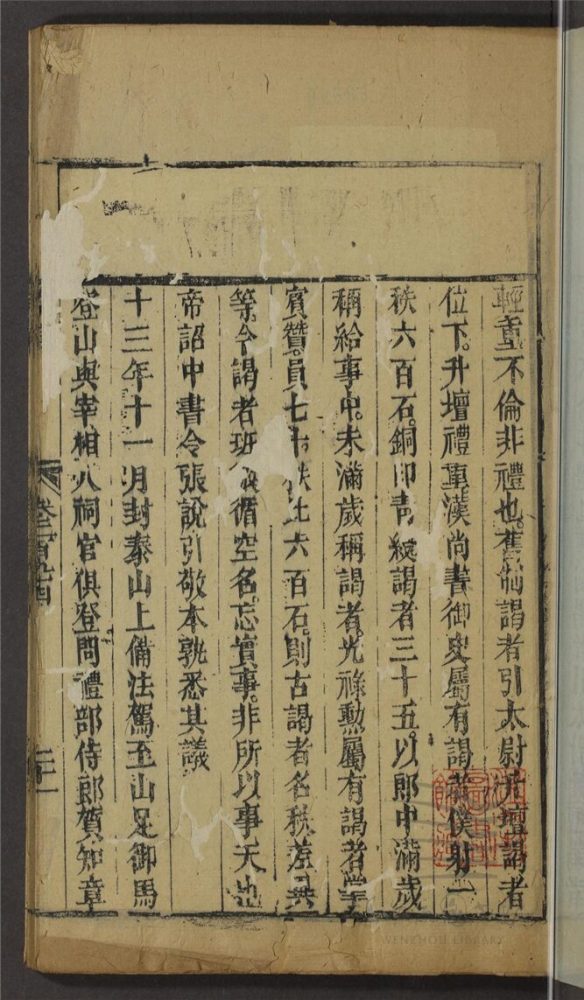 輕重不倫非禮也舊制謁者引太尉升壇謁者
位下升壇禮重漢尚書御史屬有謁者僕射一
秩六百石銅印青綬謁者三十五以郎中滿歲
稱給事中未滿歲稱謁者光祿勳屬有謁者掌
賓贊員七十秩比六百石則古謁者名秩差異
等今謁者班微循空名忘實事非所以事天也
帝詔中書令張說引敬本孰悉其議
十三年十一月封泰山上備法駕至山足御馬
登山與宰相八祠官俱登問禮部侍郎賀知章
卷二百
WENZHOU LIBRARY